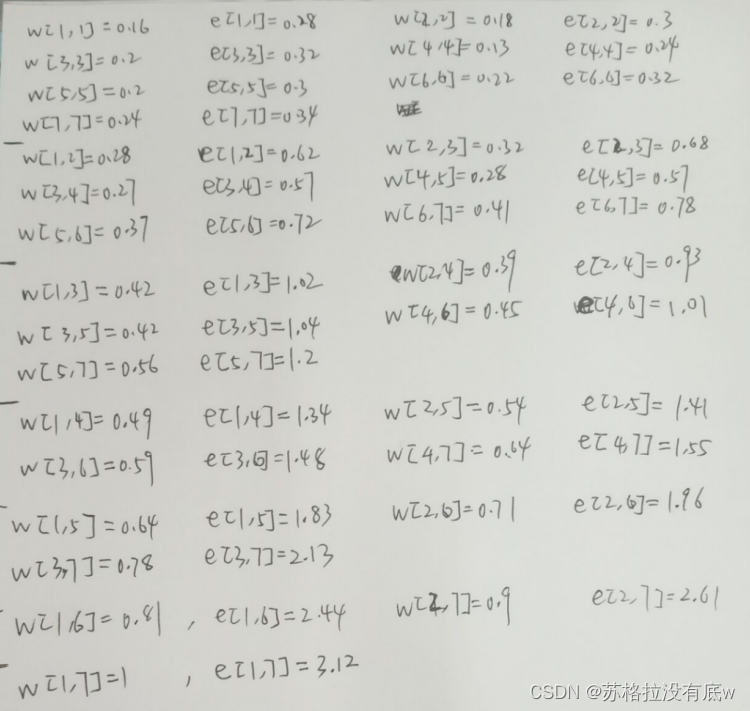 w[1,1]=0.16 e[1,1]=0.28 w[2,2]=0.18 e[2,2]=0.3
w[3,3]=0.2 e[3,3]=0.32 w[4,4]=0.13 e[4,4]=0.24
w[5,5]=0.2 e[5,5]=0.3 w[6,6]=0.22 e[6,6]=0.32
w[7,7]=0.24 e[7,7]=0.34
w[1,2]=0.28 e[1,2]=0.62 w[2,3]=0.32 e[2,3]=0.68
w[3,4]=0.27 e[3,4]=0.57 w[4,5]=0.28 e[4,5]=0.57
w[5,6]=0.37 e[5,6]=0.72 w[6,7]=0.41 e[6,7]=0.78
w[1,3]=0.42 e[1,3]=1.02 w[2,4]=0.39 e[2,4]=0.93
w[3,5]=0.42 e[3,5]=1.04 w[4,6]=0.45 e[4,6]=1.01
w[5,7]=0.56 e[5,7]=1.2
w[1,4]=0.49 e[1,4]=1.34 w[2,5]=0.54 e[2,5]=1.41
w[3,6]=0.59 e[3,6]=1.48 w[4,7]=0.64 e[4,7]=1.55
w[1,5]=0.64 e[1,5]=1.83 w[2,6]=0.71 e[2,6]=1.96
w[3,7]=0.78 e[3,7]=2.13
w[1,6]=0.81 , e[1,6]=2.44 w[2,7]=0.9 e[2,7]=2.61
w[1,7]=1 , e[1,7]=3.12
CSDN @苏格拉没有底w